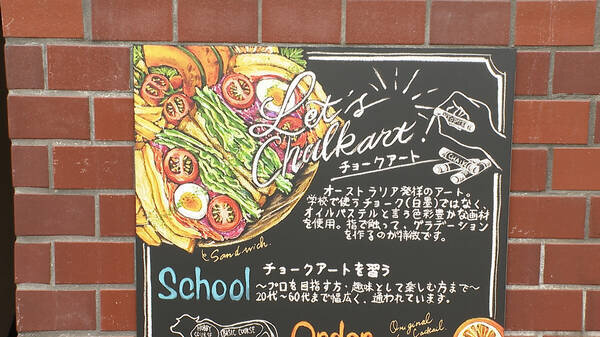 Let's
Chalkart!
チョークアート
CHALK
オーストラリア発様のアート。
学校で使うチョーク(白墨)ではなく、
オイルパステルと言う色彩豊かな画材
を使用。指で触って、グラデーション
を作るのが特徴です。
Sandwich
School
チョークアートを習う
〜プロを目指す方・趣味として楽しむ方まで〜
20代〜60代まで幅広く、通われています。
HOBBY
COURSE
BASIC COURSE
Order
Original
Cocktail